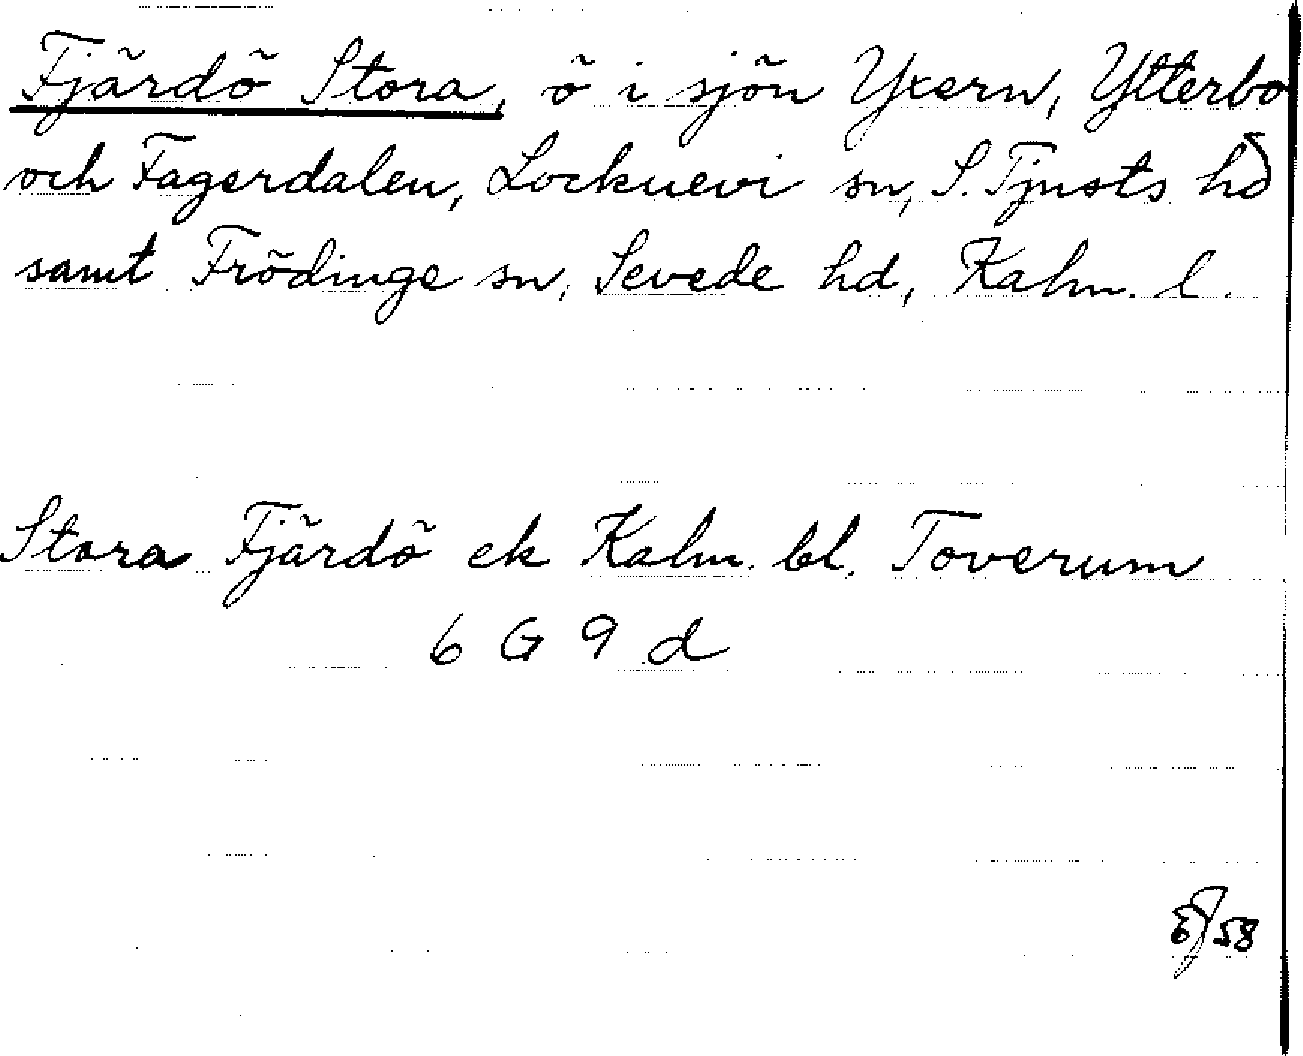 Fjärdö Stora, ö i sjön Yxern, Ytterbo
och Fagerdalen, Locknevi sn, S. Tjusts hd
samt Frödinge sn, Sevede hd, Kalm. l.
Stora Fjärdö ek Kalm. bl. Toverum
6 G 9 d